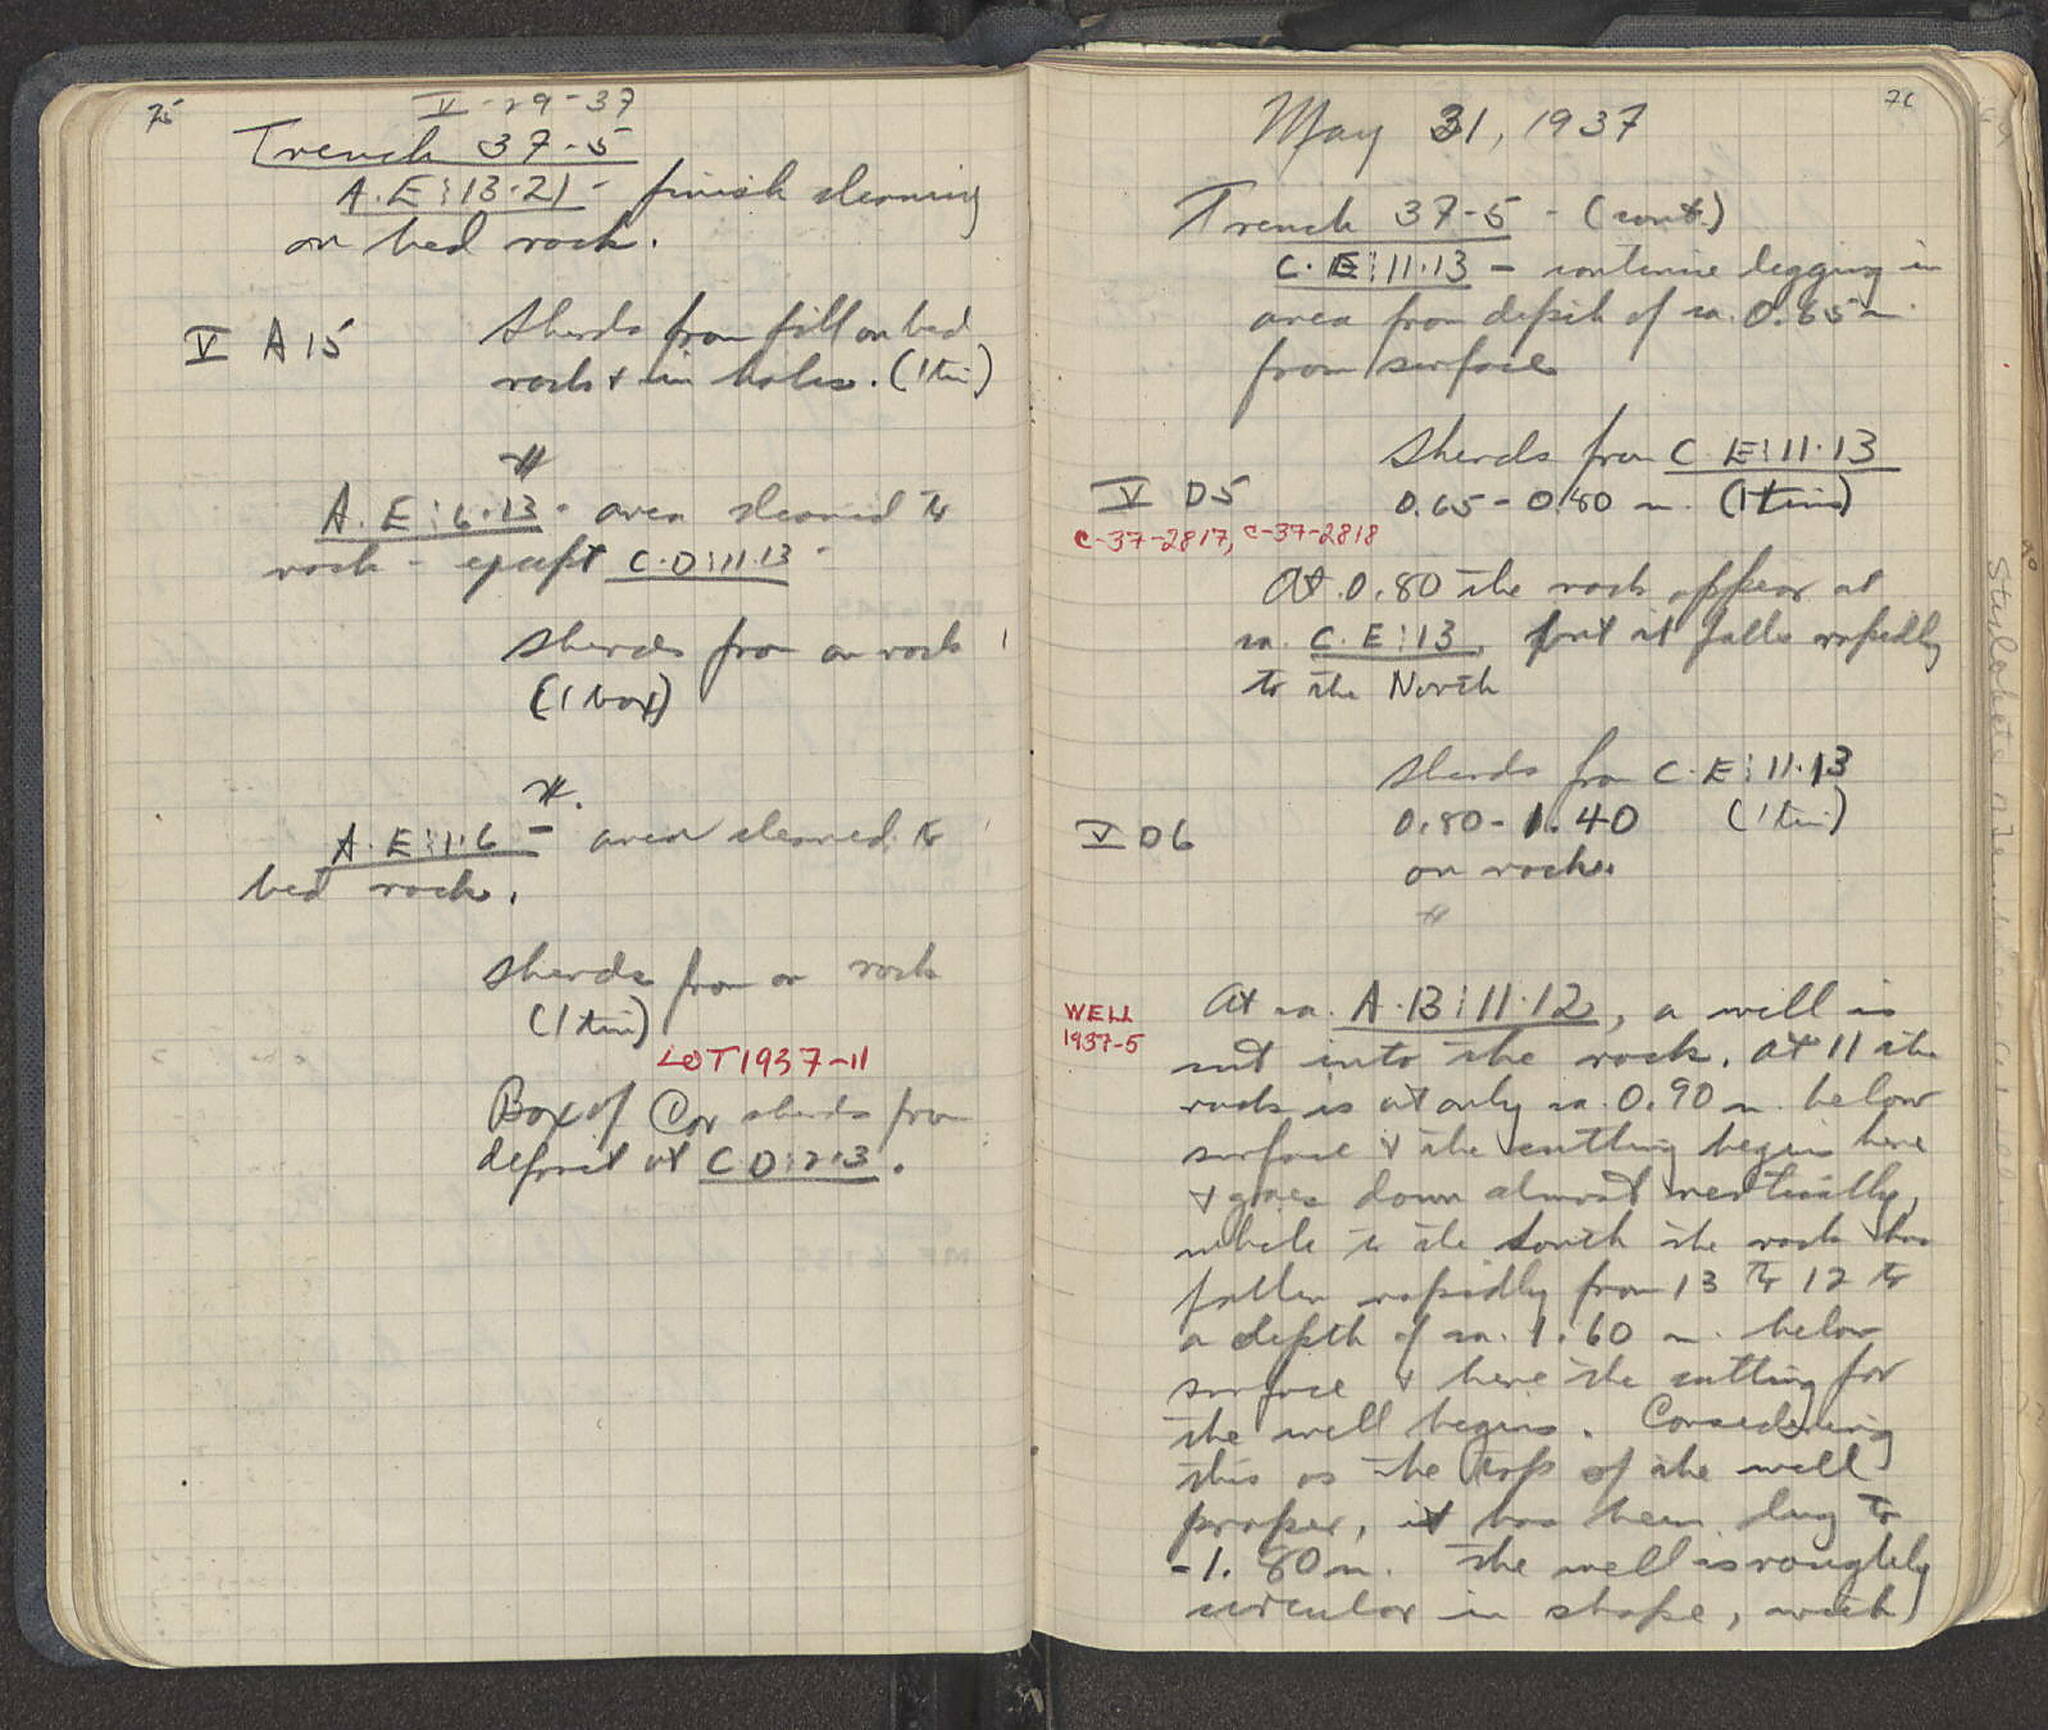 75
V-29-37
Trench 37-5
A.E:13-21 - finish cleaning
on bed rock.
V A 15
Sherds from fill on bed
rock & in holes. (1 tin)
A.E:6-13 - area cleaned to
rock - except C-D:11-13 -
Sherds from on rock
(1 box)
A.E:1-6 - area cleaned to
bed rock.
Sherds from on rock
(1 tin)
LOT 1937-11
Box of Cor sherds from
deposit at C D:2-3.
76
May 31, 1937
Trench 37-5 - (cont.)
C-E:11-13 - continue digging in
area from depth of ca. 0.65 m.
from surface
Sherds from C-E:11-13
V D5
0.65 - 0.80 m. (1 tin)
C-37-2817, C-37-2818
At 0.80 the rock appear at
ca. C-E:13, but it falls rapidly
to the North
Sherds from C-E:11-13
V D6
0.80 - 1.40 (1 tin)
on rock.
WELL
1937-5
At ca. A-B:11-12, a well is
cut into the rock. At 11 the
rock is at only ca. 0.90 m. below
surface & the cutting begins here
& goes down almost vertically,
while to the South the rock has
fallen rapidly from 13 to 12 to
a depth of ca. 1.60 m. below
surface & here the cutting for
the well begins. Considering
this as the top of the well
proper, it has been dug to
-1.80 m. The well is roughly
circular in shape, with